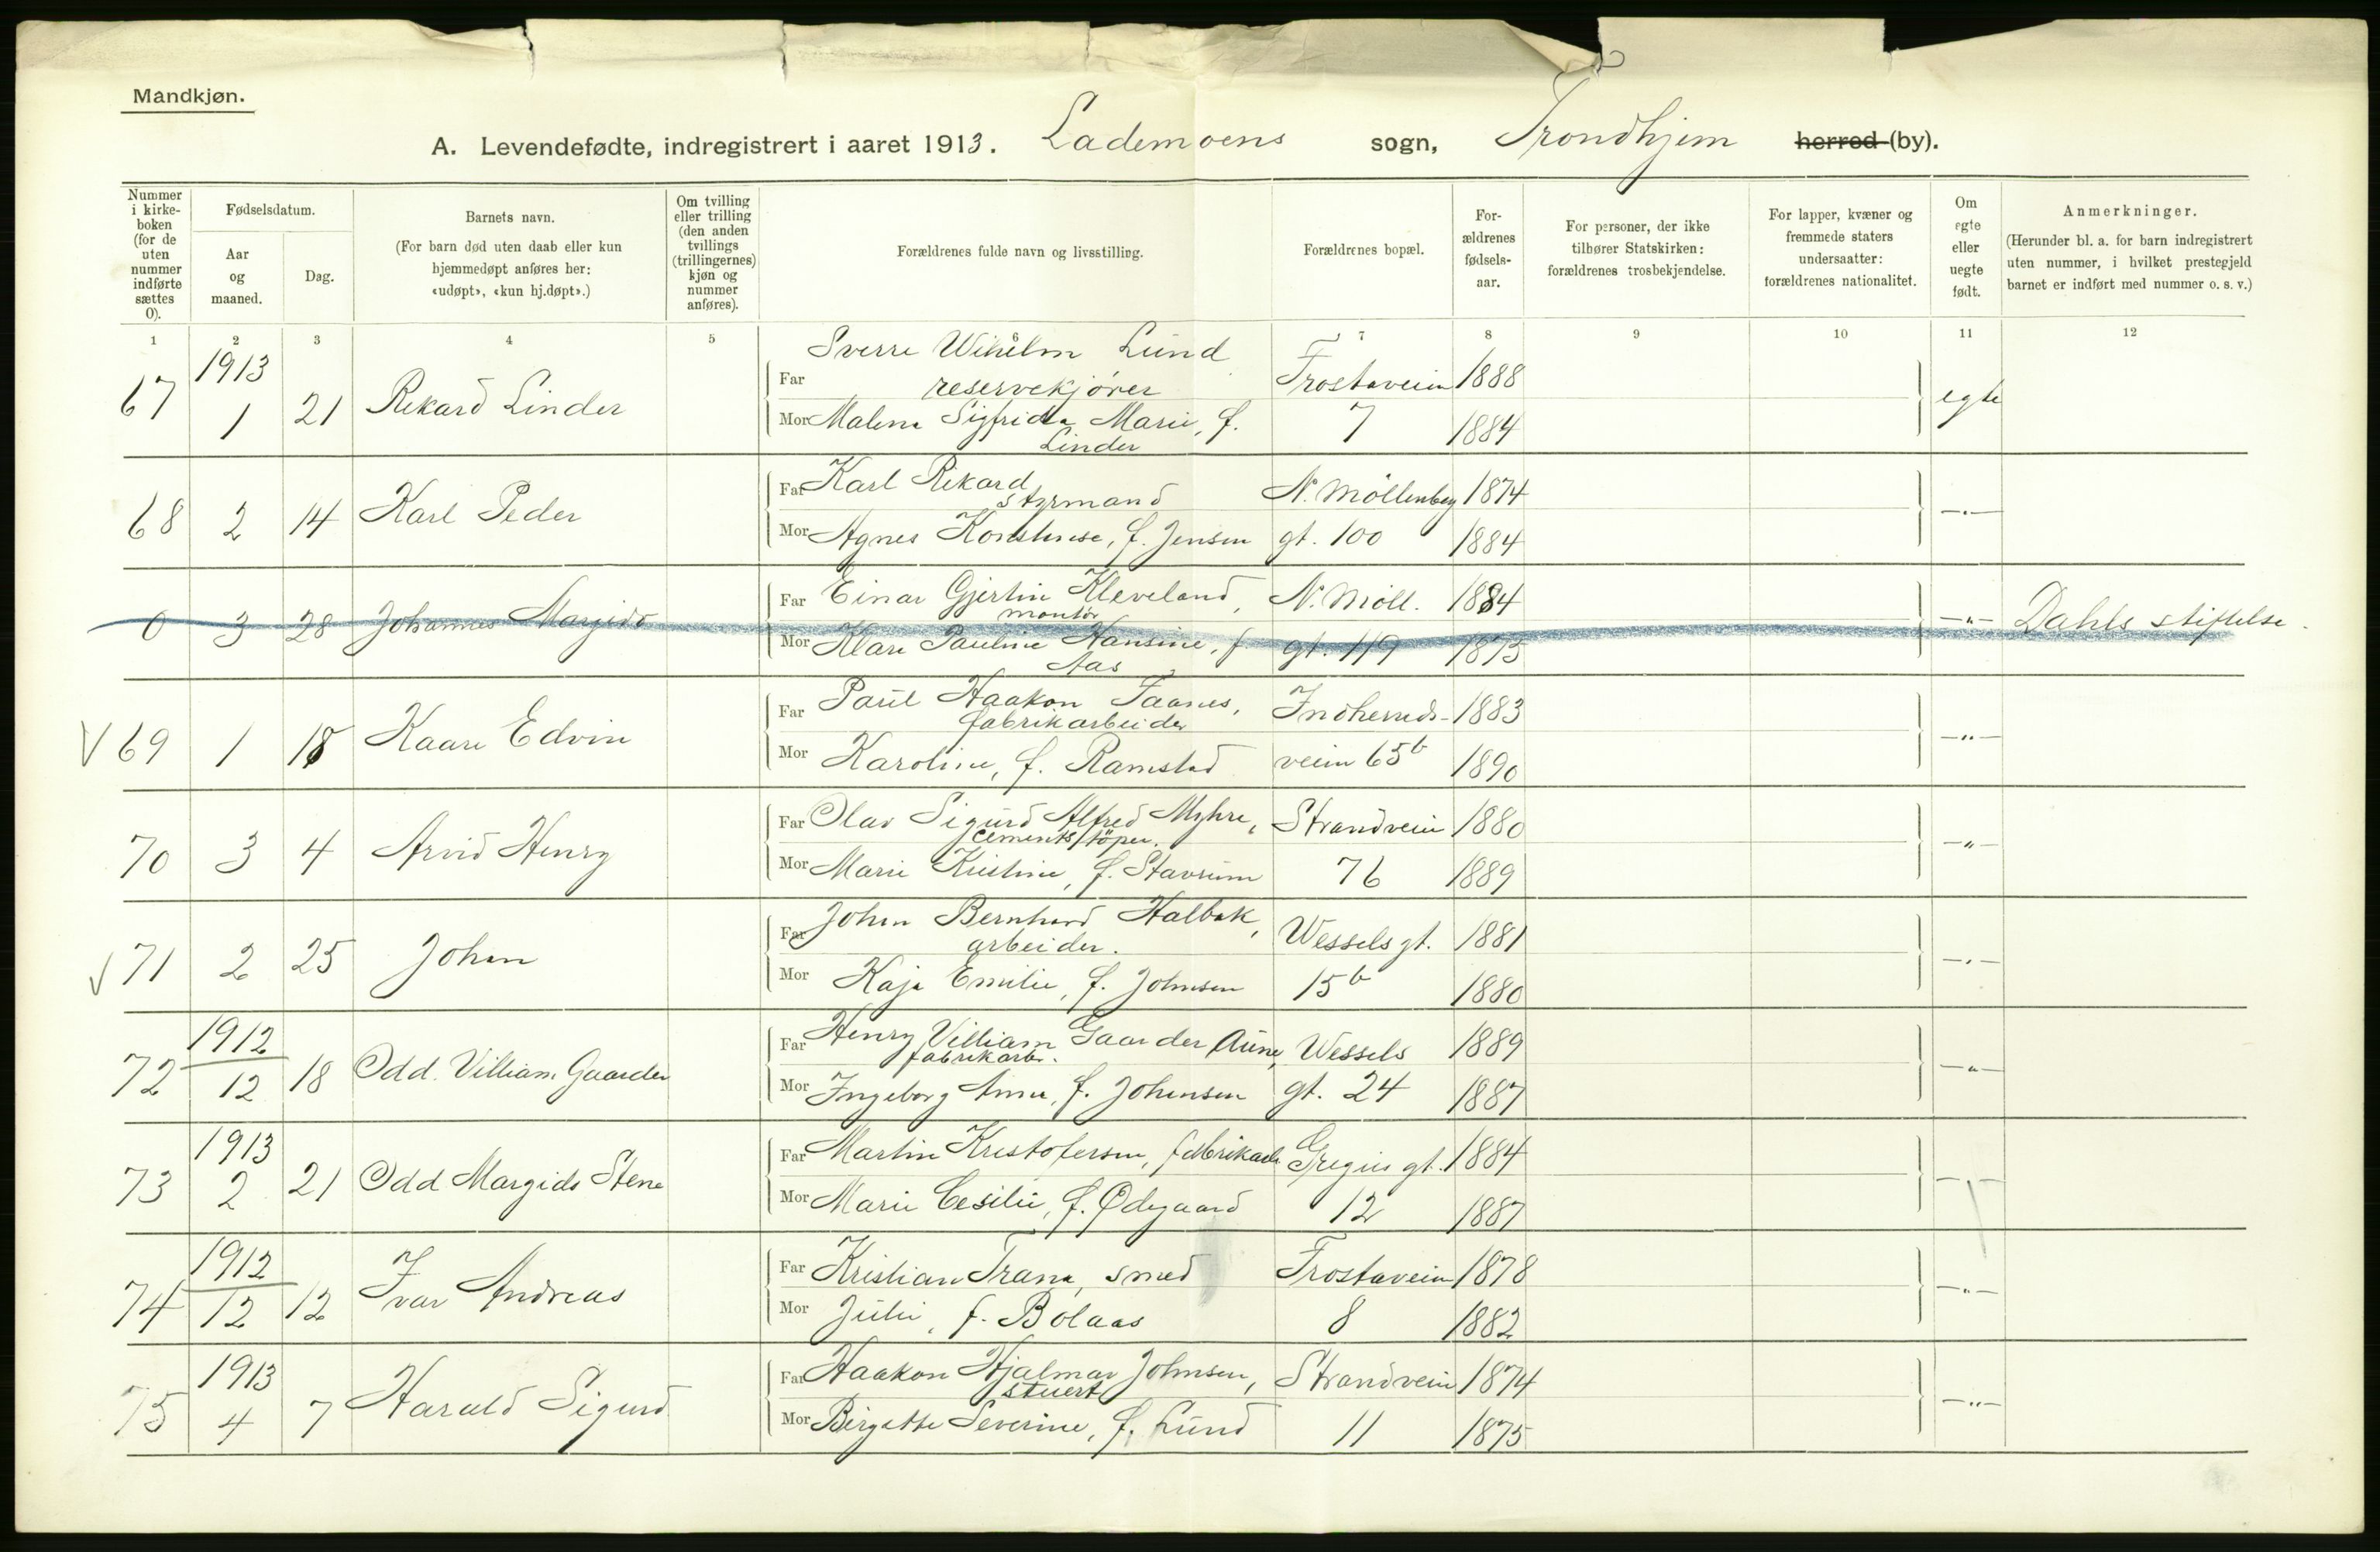 Mandkjøn.
A. Levendefødte, indregistrert i aaret 1913. Lademoens sogn, Trondhjem herred (by).
Nummer i kirke-boken (for de uten nummer indførte sættes 0).
Fødselsdatum.
Aar og maaned.
Dag.
Barnets navn.
(For barn død uten daab eller kun hjemmedøpt anføres her: «udøpt», «kun hj.døpt».)
Om tvilling eller trilling (den anden tvillings (trillingernes) kjøn og nummer anføres).
Forældrenes fulde navn og livsstilling.
Forældrenes bopæl.
For-ældrenes fødsels-aar.
For personer, der ikke tilhører Statskirken: forældrenes trosbekjendelse.
For lapper, kvæner og fremmede staters undersaatter: forældrenes nationalitet.
Om egte eller uegte født.
Anmerkninger.
(Herunder bl. a. for barn indregistrert uten nummer, i hvilket prestegjeld barnet er indført med nummer o. s. v.)
1 2 3 4 5 7 8 9 10 11 12
1913 Sverre Wilhelm Lund
67 1 21 Rikard Linder Far reservekjører Trostaveien 1888 egte
Mor Malena Sigfrida Marie, f. 7 1884
Linder
Far Karl Rikard N. Möllenberg 1874
styrmand
68 2 14 Karl Peder —"—
Mor Agnes Konstanse, f. Jensen gt. 100 1884
Far Einar Gjertin Kleveland, N. Möll. 1884
montör
0 3 28 Johannes Margido —"— Dahls stiftelse.
Mor Klara Pauline Hansine, f. gt. 119 1875
Aas
Far Paul Haakon Faanes, Indherreds- 1883
fabrikarbeider
V 69 1 18 Kaare Edvin —"—
Mor Karoline, f. Ramstad veien 65b 1890
Far Olav Sigurd Alfred Myhre, Strandveien 1880
cementstöper.
70 3 4 Arvid Henry —"—
Mor Marie Kristine, f. Stavrum 76 1889
Far Johan Bernhard Halbak, Wessels gt. 1881
arbeider.
V 71 2 25 Johan —"—
Mor Kaja Emilie, f. Johnsen 15b 1880
1912 Far Henry Villiam Gaarder Aune, Wessels 1889
fabrikarb.
72 12 18 Odd. Villiam Gaarder —"—
Mor Ingeborg Anna, f. Johansen gt. 24 1887
1913 Far Martin Kristofersen, fabrikarb. Gregus gt. 1884
73 2 21 Odd Margido Stene —"—
Mor Marie Cesilie, f. Ødegaard 12 1887
1912 Far Kristian Trana, smed Trostaveien 1878
74 12 12 Ivar Andreas —"—
Mor Julie, f. Bolaas 8 1882
1913 Far Haakon Hjalmar Johnsen, Strandveien 1874
stuert
75 4 7 Harald Sigurd —"—
Mor Birgitte Severine, f. Lund 11 1875